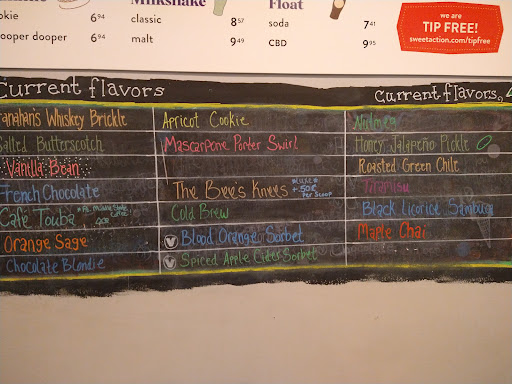 Milkshake
Float
okie 6⁹⁴
classic 8⁵⁷
soda 7⁴¹
ooper dooper 6⁹⁴
malt 9⁴⁹
CBD 9⁹⁵
we are
TIP FREE!
sweetaction.com/tipfree
Current flavors
Current flavors,
ranahan's Whiskey Brickle
Salted Butterscotch
Vanilla Bean
French Chocolate
Café Touba
Orange Sage
Chocolate Blondie
Apricot Cookie
Mascarpone Porter Swirl
The Bee's Knees +.50¢ Per Scoop
Cold Brew
Blood Orange Sorbet
Spiced Apple Cider Sorbet
Nutmeg
Honey Jalapeño Pickle
Roasted Green Chile
Tiramisu
Black Licorice Sambuca
Maple Chai